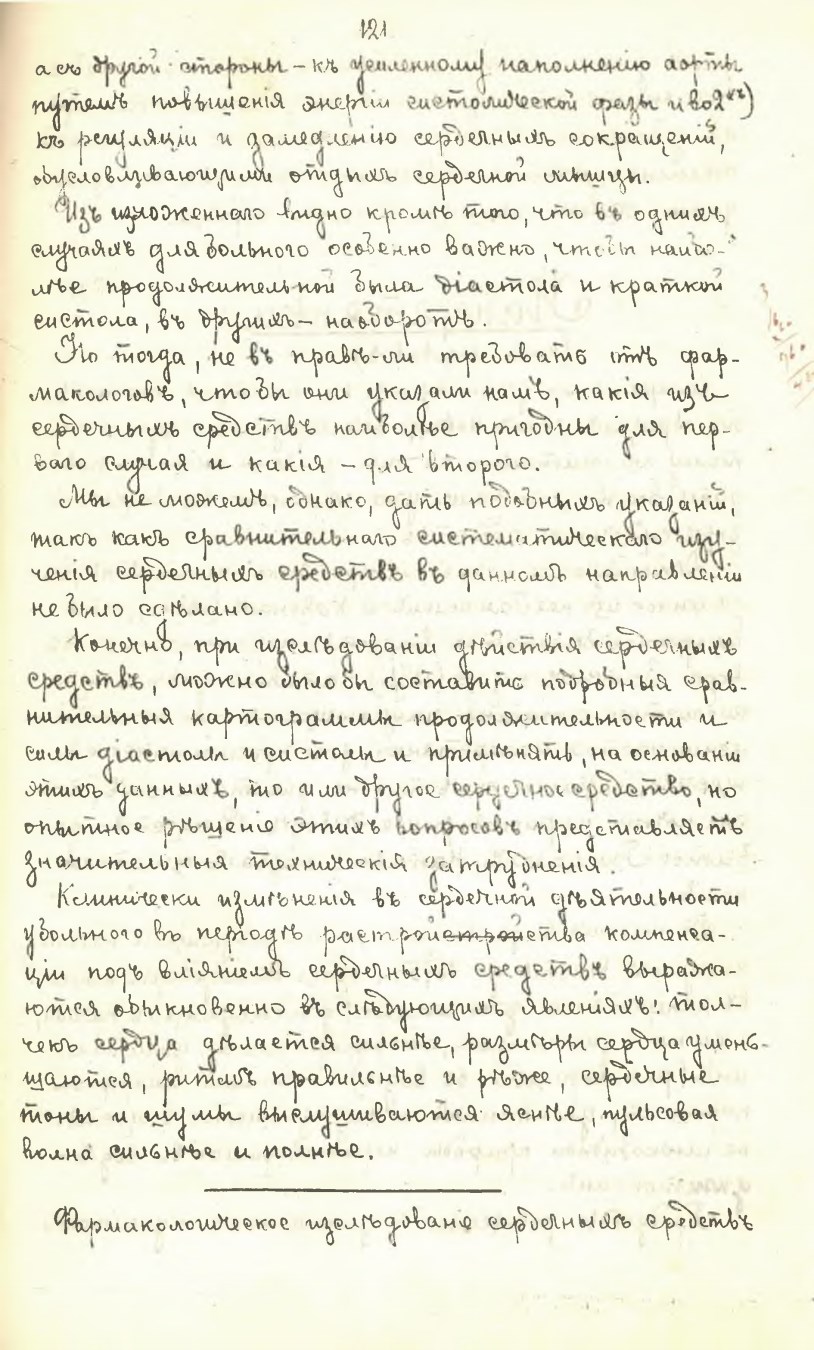 121
а съ другой стороны – къ усиленному наполненію аорты
путемъ повышенія энергіи систолической фазы и во 2хъ)
къ регуляціи и замедленію сердечныхъ сокращеній,
обусловливающими отдыхъ сердечной мышцы.
Изъ изложеннаго видно кромѣ того, что въ однихъ
случаяхъ для больного особенно важно, чтобы наибо-
лѣе продолжительной была діастола и краткой
систола, въ другихъ – наоборотъ.
Но тогда, не въ правѣ-ли требовать отъ фар-
макологовъ, чтобы они указали намъ, какія изъ
сердечныхъ средствъ наиболѣе пригодны для пер-
ваго случая и какія – для второго.
Мы не можемъ, однако, дать подобныхъ указаній,
такъ какъ сравнительнаго систематическаго изу-
ченія сердечныхъ средствъ въ данномъ направленіи
не было сдѣлано.
Конечно, при изслѣдованіи дѣйствія сердечныхъ
средствъ, можно было бы составить подробныя срав-
нительныя картограммы продолжительности и
силы діастолы и систолы и примѣнять, на основаніи
этихъ данныхъ, то или другое сердечное средство, но
опытное рѣшеніе этихъ вопросовъ представляетъ
значительныя техническія затрудненія.
Клинически измѣненія въ сердечной дѣятельности
у больного въ періодѣ растройстройства компенса-
ціи подъ вліяніемъ сердечныхъ средствъ выража-
ются обыкновенно въ слѣдующихъ явленіяхъ: тол-
чекъ сердца дѣлается сильнѣе, размѣры сердца умень-
щаются, ритмъ правильнѣе и рѣже, сердечные
тоны и шумы выслушиваются яснѣе, пульсовая
волна сильнѣе и полнѣе.
Фармакологическое изслѣдованіе сердечныхъ средствъ